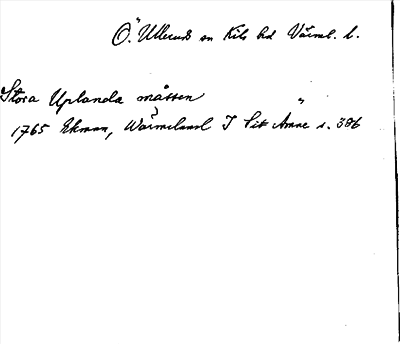 Ö. Ullerud sn Kils hd Värml. l.
Stora Uplanda måssen "
1765 Ekman, Wärmeland I sit Ämne s. 386